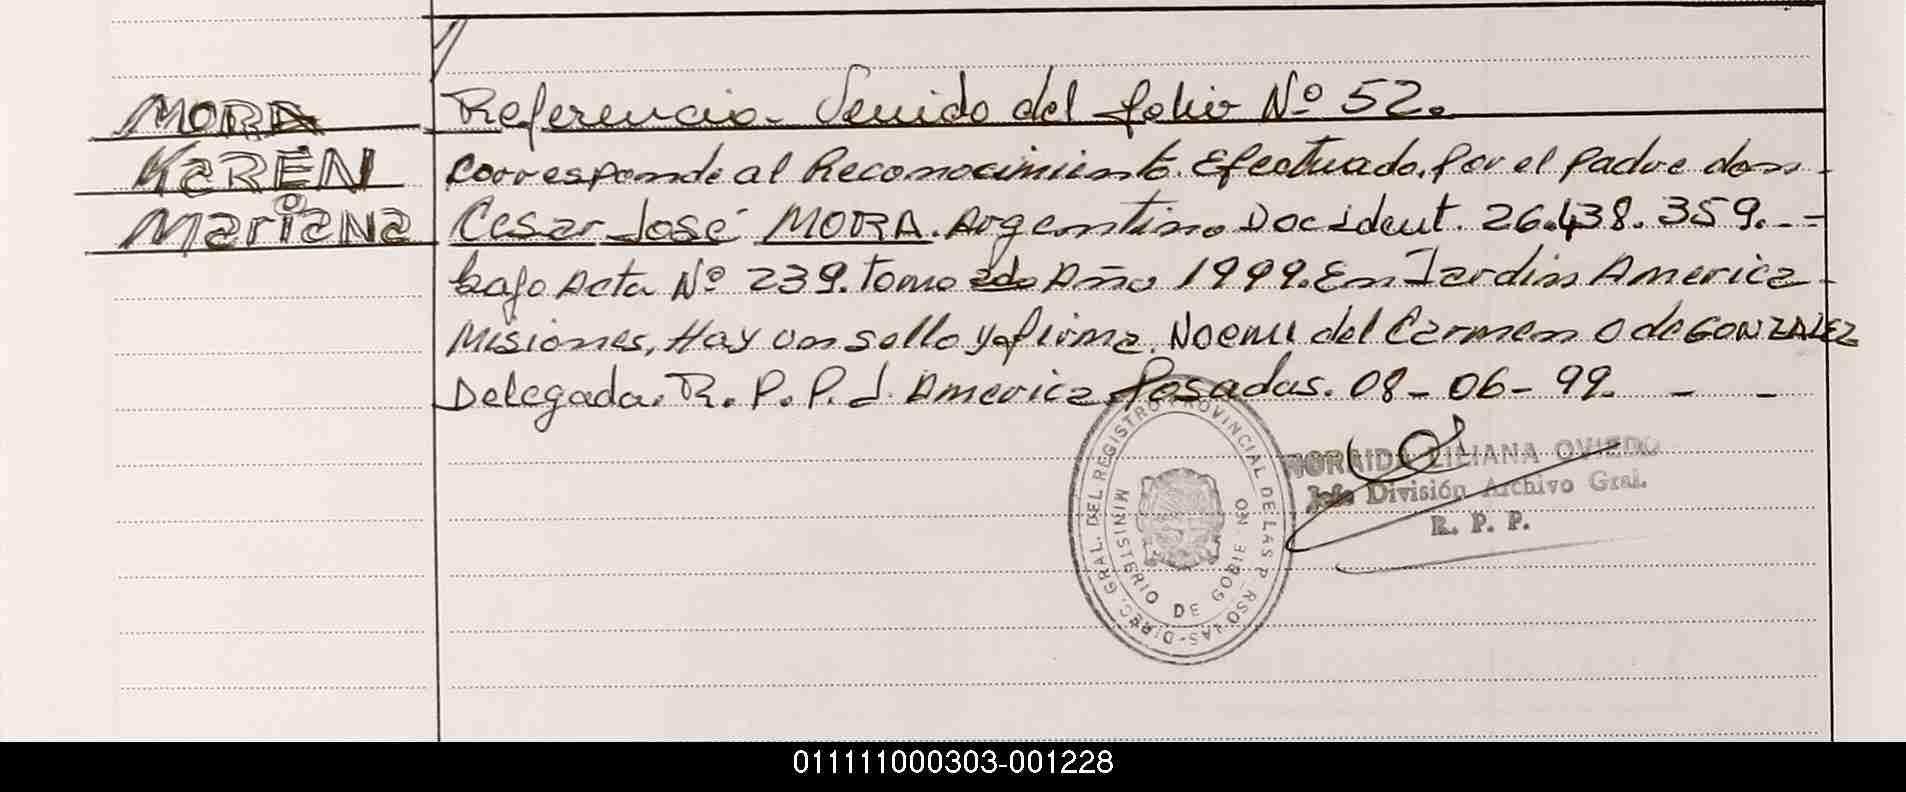 MORA
KAREN
Mariana
Referencia - Venido del folio Nº 52.
Corresponde al Reconocimiento. Efectuado. por el Padre don -
Cesar José MORA. Argentino Doc ident. 26.438.359. - =
bajo Acta Nº 239. tomo 2do Año 1999. En Jardin America -
Misiones, Hay un sello y firma. Noemi del Carmen O de GONZALEZ
Delegada. R. P. P. J. America Posadas. 08 - 06 - 99. - -
DIREC. GRAL. DEL REGISTRO PROVINCIAL DE LAS P RSO AS
MINISTERIO DE GOBIE NO
LILIANA OVIEDO
Jefe División Archivo Gral.
R. P. P.
011111000303-001228